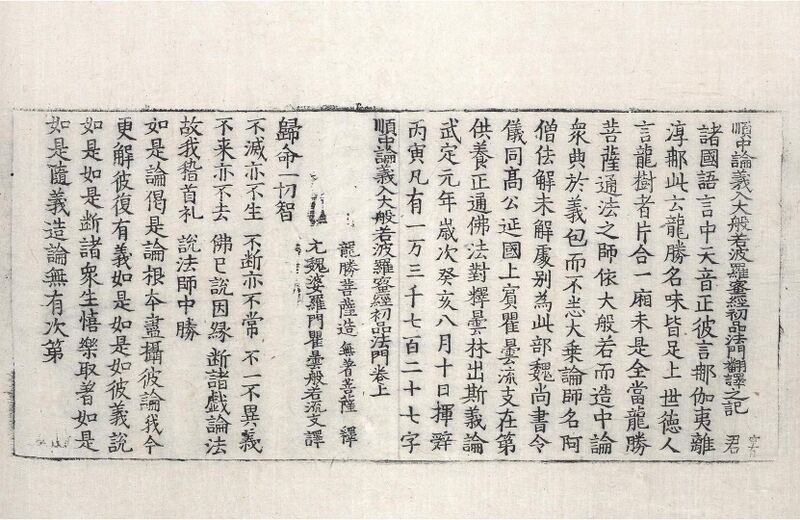 順中論義入大般若波羅蜜經初品法門翻譯之記 君
諸國語言中天音正彼言那伽夷離
淳那此云龍勝名味皆足上世德人
言龍樹者片合一廂未是全當龍勝
菩薩通法之師依大般若而造中論
衆典於義包而不悉大乗論師名阿
僧佉解未解處别為此部魏尚書令
儀同髙公延國上賓瞿曇流支在第
供養正通佛法對釋曇林出斯義論
武定元年歲次癸亥八月十日揮辤
丙寅凡有一万三千七百二十七字
順中論義入大般若波羅蜜經初品法門卷上
龍勝菩薩造 無著菩薩 釋
元魏婆羅門瞿曇般若流支譯
歸命一切智
不滅亦不生 不断亦不常 不一不異義
不来亦不去 佛已說因縁 断諸戲論法
故我𥡳首礼 說法師中勝
如是論偈是論根本盡攝彼論我今
更解彼復有義如是如是如彼義說
如是如是断諸衆生憘樂取著如是
如是隨義造論無有次第